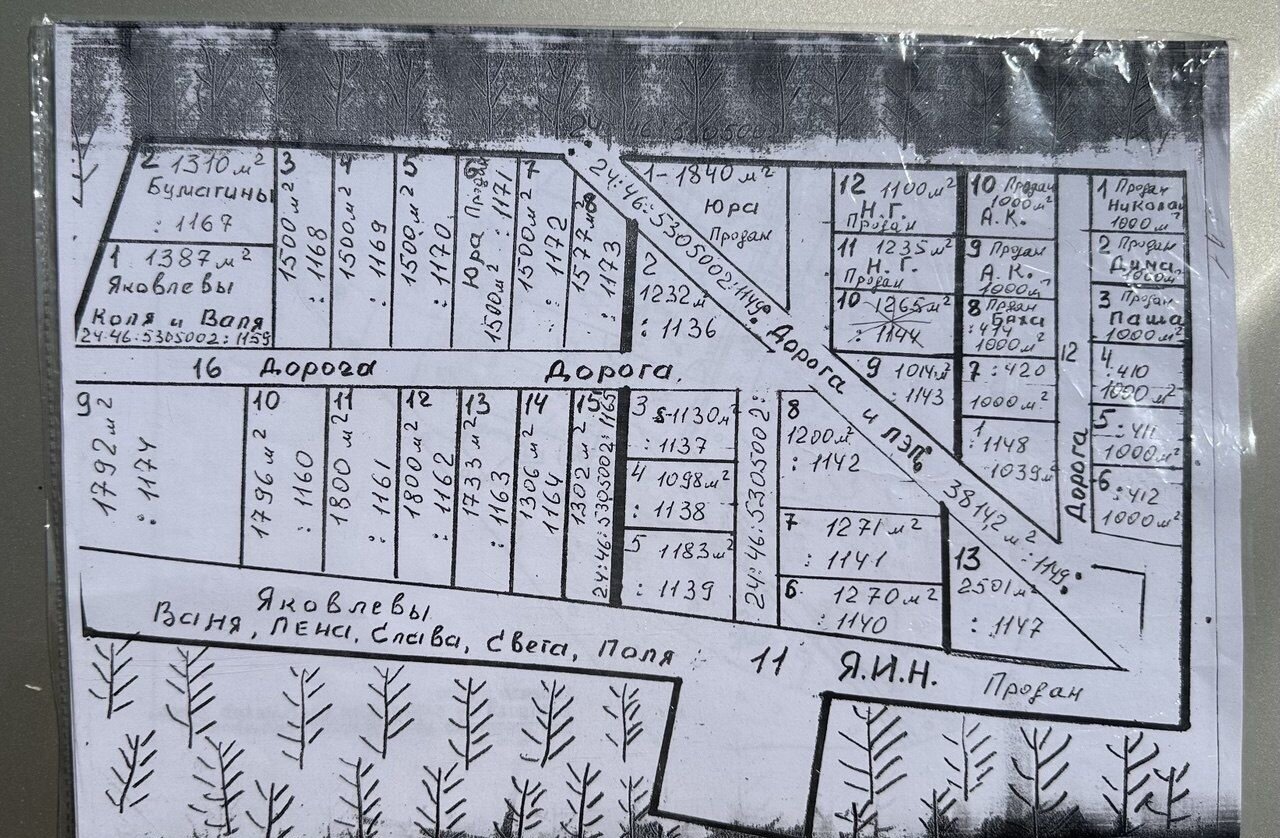 24:46:5305002
2 1310 м²
Бумагины
: 1167
1 1387 м²
Яковлевы
Коля и Валя
24:46:5305002:1159
3
1500 м²
: 1168
4
1500 м²
: 1169
5
1500 м²
: 1170
6
Юра Продан
1500 м² : 1171
7
1500 м²
: 1172
1577 м²
: 1173
24:46:5305002:1149
Дорога и ЛЭП
3814,2 м² : 1149
1-1840 м²
Юра
Продан
2
1232 м²
: 1136
12 1100 м²
Н.Г.
Продан
11 1235 м²
Н.Г.
Продан
10 1265 м²
: 1144
9 1014 м²
: 1143
10 Продан
1000 м²
А.К.
9 Продан
А.К.
1000 м²
8 Продан
: 414
1000 м²
7 : 420
1000 м²
1
: 1148
1039 м²
12
Дорога
1 Продан
Николай
1000 м²
2 Продан
Дима
1000 м²
3 Продан
Паша
1000 м²
4
: 410
1000 м²
5 : 411
1000 м²
6
: 412
1000 м²
16 Дорога Дорога
9
1792 м²
: 1174
10
1796 м²
: 1160
11
1800 м²
: 1161
12
1800 м²
: 1162
13
1733 м²
: 1163
14
1306 м²
1164
15
1302 м²
24:46:5305002:1165
3 S-1130 м²
: 1137
4 1098 м²
: 1138
5 1183 м²
: 1139
24:46:5305002:
8
1200 м²
: 1142
7 1271 м²
: 1141
6 1270 м²
: 1140
13
2501 м²
: 1147
Яковлевы
Ваня, Лена, Слава, Света, Поля
11 Я.И.Н. Продан